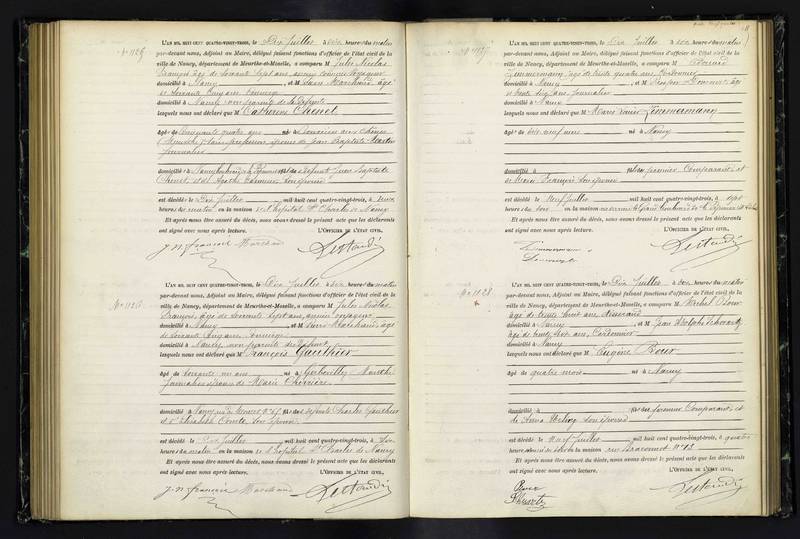 N° 1125
L'AN MIL HUIT CENT QUATRE-VINGT-TROIS, le Dix Juillet à dix heures du matin
par-devant nous, Adjoint au Maire, délégué faisant fonctions d'officier de l'état civil de la
ville de Nancy, département de Meurthe-et-Moselle, a comparu M Jules Nicolas
François âgé de soixante sept ans, ancien voyageur
domicilié à Nancy, et M Marchand âgé
de soixante cinq ans, concierge
domicilié à Nancy, non parents de la défunte
lesquels nous ont déclaré que Catherine Chenet
âgée de cinquante quatre ans née à
(Meurthe) sans profession, épouse de Jean Baptiste Martin
journalier
domiciliée à Nancy fille de défunt Jean Baptiste
Chenet, et d'Agathe son épouse
est décédée le Dix Juillet mil huit cent quatre-vingt-trois, à deux
heures du matin en la maison de l'hôpital St Charles de Nancy
Et après nous être assuré du décès, nous avons dressé le présent acte que les déclarants
ont signé avec nous après lecture. L'OFFICIER DE L'ÉTAT CIVIL,
J. N. François Marchand
N° 1126
L'AN MIL HUIT CENT QUATRE-VINGT-TROIS, le Dix Juillet à dix heures du matin
par-devant nous, Adjoint au Maire, délégué faisant fonctions d'officier de l'état civil de la
ville de Nancy, département de Meurthe-et-Moselle, a comparu M Jules Nicolas
François, âgé de soixante sept ans, ancien voyageur
domicilié à Nancy, et M Marchand âgé
de soixante cinq ans, concierge
domicilié à Nancy, non parents du défunt
lesquels nous ont déclaré que François Gauthier
âgé de soixante un ans né à
journalier époux de Marie
domicilié à Nancy, fils de défunts Charles Gauthier
et d'Elisabeth Comte, son épouse
est décédé le Dix Juillet mil huit cent quatre-vingt-trois, à
heures du matin en la maison de l'hôpital St Charles de Nancy
Et après nous être assuré du décès, nous avons dressé le présent acte que les déclarants
ont signé avec nous après lecture. L'OFFICIER DE L'ÉTAT CIVIL,
J. N. François Marchand
N° 1127
L'AN MIL HUIT CENT QUATRE-VINGT-TROIS, le Dix Juillet à dix heures du matin
par-devant nous, Adjoint au Maire, délégué faisant fonctions d'officier de l'état civil de la
ville de Nancy, département de Meurthe-et-Moselle, a comparu M Edouard
Zimmermann, âgé de trente quatre ans, Cordonnier
domicilié à Nancy, et M âgé
de trente six ans, journalier
domicilié à Nancy
lesquels nous ont déclaré que Marie Zimmermann
âgée de dix neuf mois née à Nancy
domiciliée à fille du premier Comparant et
de Marie François son épouse
est décédée le Neuf Juillet mil huit cent quatre-vingt-trois, à sept
heures du soir en la maison
Et après nous être assuré du décès, nous avons dressé le présent acte que les déclarants
ont signé avec nous après lecture. L'OFFICIER DE L'ÉTAT CIVIL,
Zimmermann
N° 1128
L'AN MIL HUIT CENT QUATRE-VINGT-TROIS, le Dix Juillet à dix heures du matin
par-devant nous, Adjoint au Maire, délégué faisant fonctions d'officier de l'état civil de la
ville de Nancy, département de Meurthe-et-Moselle, a comparu M Michel Bour
âgé de trente huit ans
domicilié à Nancy, et M Jean Adolphe
âgé de trente huit ans, Cordonnier
domicilié à Nancy
lesquels nous ont déclaré que Eugène Bour
âgé de quatre mois né à Nancy
domicilié à fils du premier Comparant et
de Anna son épouse
est décédé le Neuf Juillet mil huit cent quatre-vingt-trois, à quatre
heures du soir en la maison rue Braconnot N° 13
Et après nous être assuré du décès, nous avons dressé le présent acte que les déclarants
ont signé avec nous après lecture. L'OFFICIER DE L'ÉTAT CIVIL,
Bour